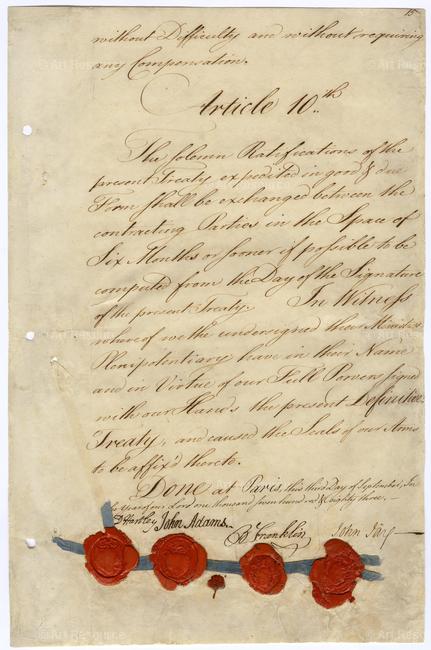 15
without Difficulty and without requiring
any Compensation.
Article 10th
The solemn Ratifications of the
present Treaty expedited in good & due
Form shall be exchanged between the
contracting Parties in the Space of
Six Months or sooner if possible to be
computed from the Day of the Signature
of the present Treaty. In Witness
whereof we the undersigned their Ministers
Plenipotentiary have in their Name
and in Virtue of our Full Powers signed
with our Hands the present Definitive
Treaty, and caused the Seals of our Arms
to be affix'd thereto.
Done at Paris, this third Day of September, In
the Year of our Lord one thousand seven hundred & eighty three.
D Hartley John Adams. B Franklin John Jay
© Art Resource